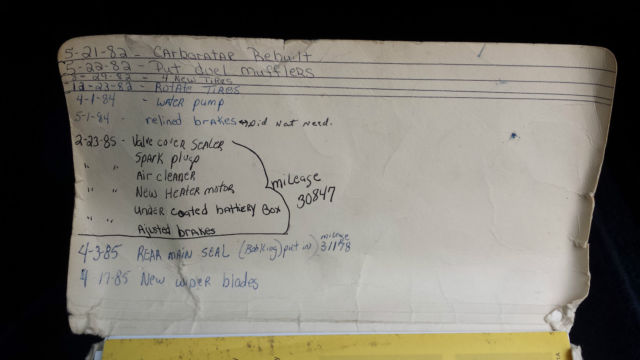 5-21-82 - Carboratar Rebuilt
5-22-82 - Put duel mufflers
-82 - 4 New Tires
12-23-82 - Rotate Tires
4-1-84 - water pump
5-1-84 - relined brakes Did Not Need.
2-23-85 - Valve cover Sealer
" " Spark plugs
Air cleaner
" " New Heater motor
" " Under coated battery Box
" " Ajusted brakes
mileage
30847
mileage
4-3-85 Rear main seal put in) 31178
4-17-85 New wiper blades